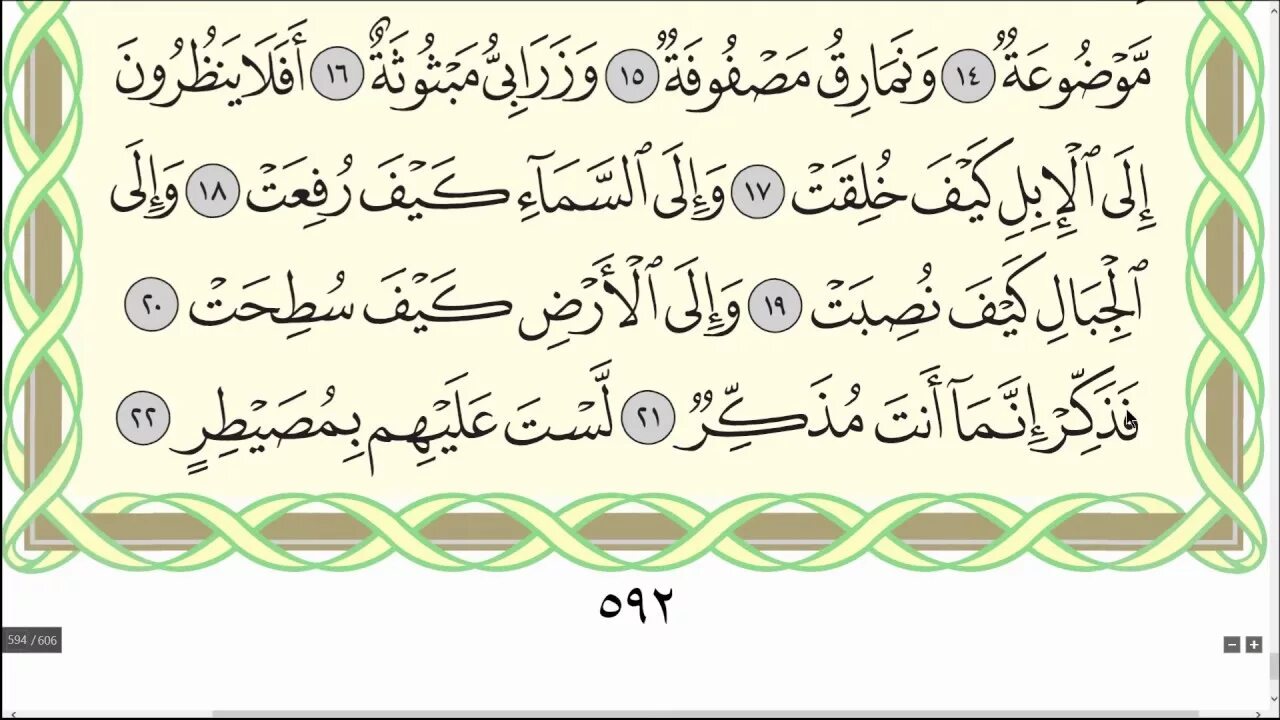 مَّوْضُوعَةٌ ١٤ وَنَمَارِقُ مَصْفُوفَةٌ ١٥ وَزَرَابِيُّ مَبْثُوثَةٌ ١٦ أَفَلَا يَنظُرُونَ
إِلَى ٱلْإِبِلِ كَيْفَ خُلِقَتْ ١٧ وَإِلَى ٱلسَّمَآءِ كَيْفَ رُفِعَتْ ١٨ وَإِلَى
ٱلْجِبَالِ كَيْفَ نُصِبَتْ ١٩ وَإِلَى ٱلْأَرْضِ كَيْفَ سُطِحَتْ ٢٠
فَذَكِّرْ إِنَّمَآ أَنتَ مُذَكِّرٌ ٢١ لَّسْتَ عَلَيْهِم بِمُصَيْطِرٍ ٢٢
٥٩٢
594 / 606